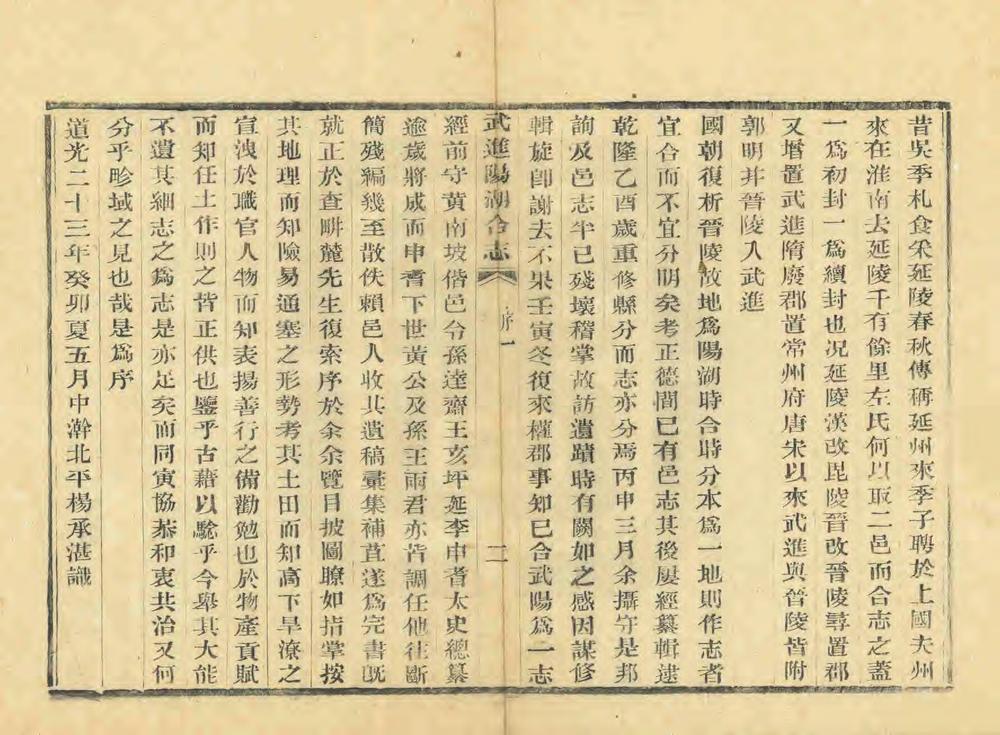 昔吳季札食采延陵春秋傳稱延州來季子聘於上國夫州
來在淮南去延陵千有餘里左氏何以取二邑而合志之蓋
一爲初封一爲續封也况延陵漢改毘陵晉改晉陵尋置郡
又增置武進隋廢郡置常州府唐宋以來武進與晉陵皆附
郭明并晉陵入武進
國朝復析晉陵故地爲陽湖時合時分本爲一地則作志者
宜合而不宜分明矣考正德間已有邑志其後屢經纂輯逮
乾隆乙酉歲重修縣分而志亦分焉丙申三月余攝守是邦
詢及邑志半已殘壞稽掌故訪遺蹟時有闕如之感因謀修
輯旋卽謝去不果壬寅冬復來權郡事知已合武陽爲一志
武進陽湖合志 序一 二
經前守黃南坡偕邑令孫達齋王亥坪延李申耆太史總纂
逾歲將成而申耆下世黃公及孫王兩君亦皆調任他往斷
簡殘編幾至散佚賴邑人收其遺稿彙集補苴遂爲完書旣
就正於查畊麓先生復索序於余余覽目披圖瞭如指掌按
其地理而知險易通塞之形勢考其土田而知高下旱潦之
宣洩於職官人物而知表揚善行之備勸勉也於物產貢賦
而知任土作則之皆正供也鑒乎古藉以驗乎今舉其大能
不遺其細志之爲志是亦足矣而同寅協恭和衷共治又何
分乎畛域之見也哉是爲序
道光二十三年癸卯夏五月中澣北平楊承湛識